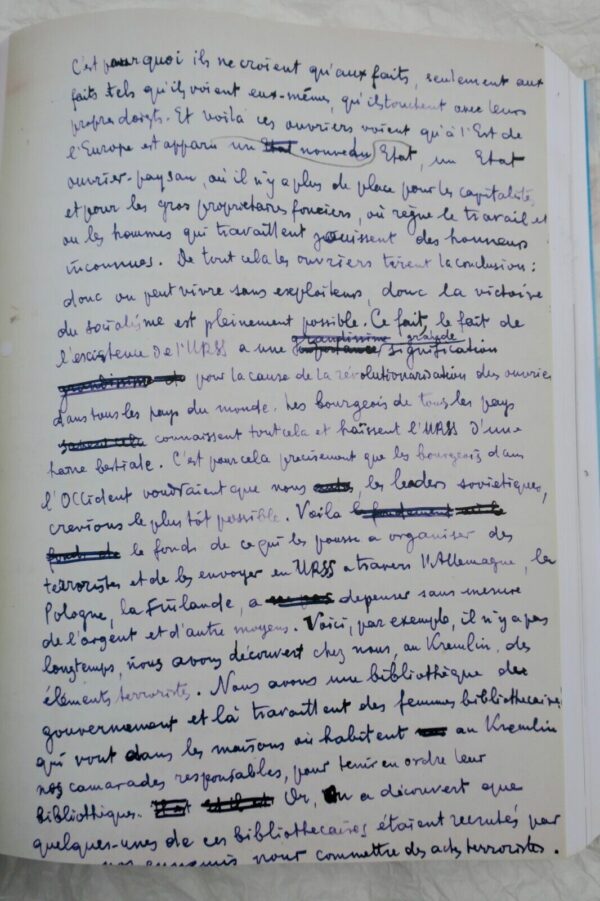 C'est pourquoi ils ne croient qu'aux faits, seulement aux
faits tels qu'ils voient eux-mêmes, qu'ils touchent avec leurs
propres doigts. Et voilà ces ouvriers voient qu'à l'Est de
l'Europe est apparu un Etat nouveau Etat, un Etat
ouvrier-paysan, où il n'y a plus de place pour les capitalistes
et pour les gros propriétaires fonciers, où règne le travail et
où les hommes qui travaillent jouissent des honneurs
inconnues. De tout cela les ouvriers tirent la conclusion:
donc on peut vivre sans exploiteurs, donc la victoire
du socialisme est pleinement possible. Ce fait, le fait de
l'existence de l'URSS a une grandissime grande
importance signification
pour la cause de la révolutionarisation des ouvriers
dans tous les pays du monde. Les bourgeois de tous les pays
connaissent tout cela et haïssent l'URSS d'une
haine bestiale. C'est pour cela précisement que les bourgeois dans
l'Occident voudraient que nous, les leaders soviétiques,
crevions le plus tôt possible. Voila le fondement
le fonds de ce qui les pousse a organiser des
terroristes et de les envoyer en URSS a travers l'Allemagne, la
Pologne, la Finlande, a depenser sans mesure
de l'argent et d'autre moyens. Voici, par exemple, il n'y a pas
longtemps, nous avons découvert chez nous, au Kremlin, des
éléments terroristes. Nous avons une bibliothèque de
gouvernement et là travaillent des femmes bibliothecaires
qui vont dans les maisons où habitent au Kremlin
nos camarades responsables, pour tenir en ordre leur
bibliothèques. Or, on a découvert que
quelques-unes de ces bibliothecaires étaient recrutés par
nos ennemis pour commettre des actes terroristes.